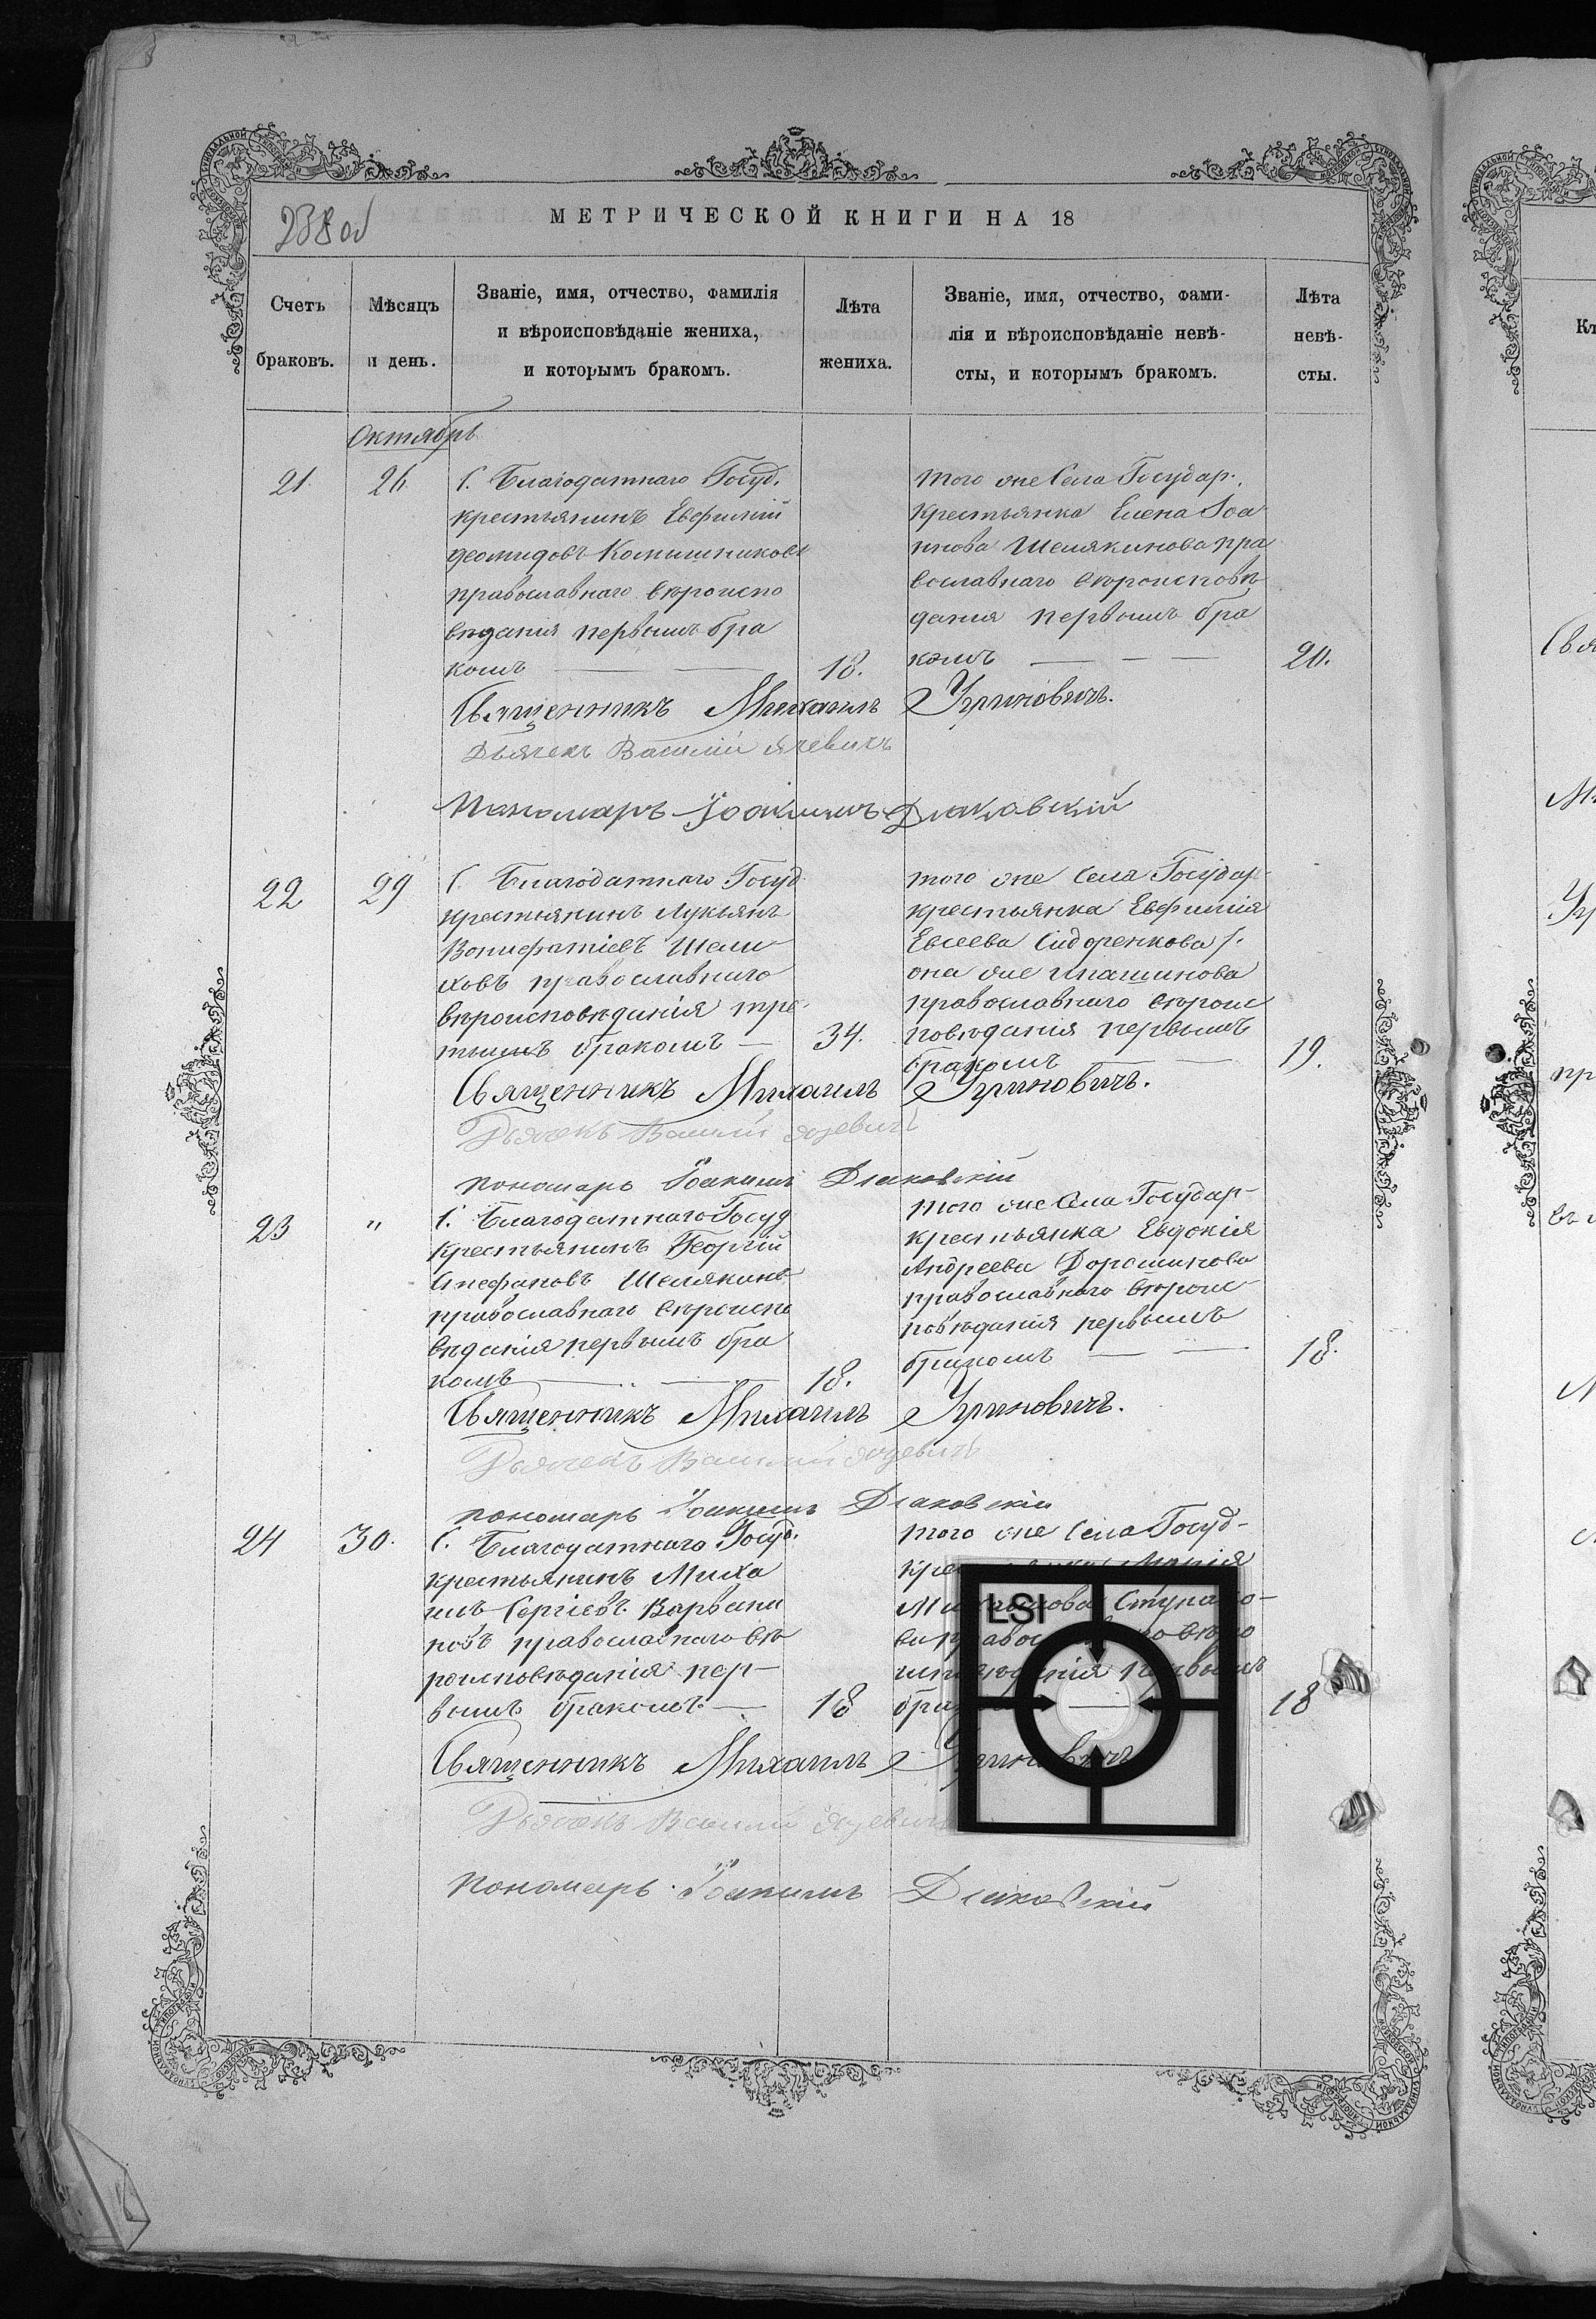 238 об
МЕТРИЧЕСКОЙ КНИГИ НА 18
Счетъ браковъ.
Мѣсяцъ и день.
Званіе, имя, отчество, фамилія
и вѣроисповѣданіе жениха,
и которымъ бракомъ.
Лѣта жениха.
Званіе, имя, отчество, фами-
лія и вѣроисповѣданіе невѣ-
сты, и которымъ бракомъ.
Лѣта невѣ-сты.
Октябрь
21.
26
С. Благодатнаго Госуд.
крестьянинъ Евфимій
Деомидовъ
православнаго вѣроиспо
вѣданія первымъ бра
комъ
18.
того же Села Государ.
крестьянка Елена Іоа
ннова Шелякинова пра
вославнаго вѣроисповѣ
данія первымъ бра
комъ
20.
Священникъ Михаилъ Угриновичъ.
Дьячекъ Василій
Пономарь Іоакимъ
22
29
С. Благодатнаго Госуд
крестьянинъ Лукьянъ
Вонифатіевъ Шели
ховъ православнаго
вѣроисповѣданія тре
тьимъ бракомъ
34.
того же Села Государ
крестьянка Евфимія
Евсеева Сидоренкова
она же
православнаго вѣроис
повѣданія первымъ
бракомъ
19.
Священникъ Михаилъ Угриновичъ.
Дьячекъ Василій
пономарь Іоакимъ
23
"
С. Благодатнаго Госуд
крестьянинъ Георгій
Стефановъ Шелякинъ
православнаго вѣроиспо
вѣданія первымъ бра
комъ
18.
того же Села Государ-
крестьянка Евдокія
Андреева Дорошинова
православнаго вѣроис-
повѣданія первымъ
бракомъ
18.
Священникъ Михаилъ Угриновичъ.
Дьячекъ Василій
пономарь Іоакимъ
24
30.
С. Благодатнаго Госуд.
крестьянинъ Миха
илъ Сергіевъ Варвани
новъ православнаго вѣ
роисповѣданія пер-
вымъ бракомъ
18
того же Села Госуд-
Марія
LSI
18
Священникъ Михаилъ Угриновичъ
Дьячекъ Василій
пономарь Іоакимъ